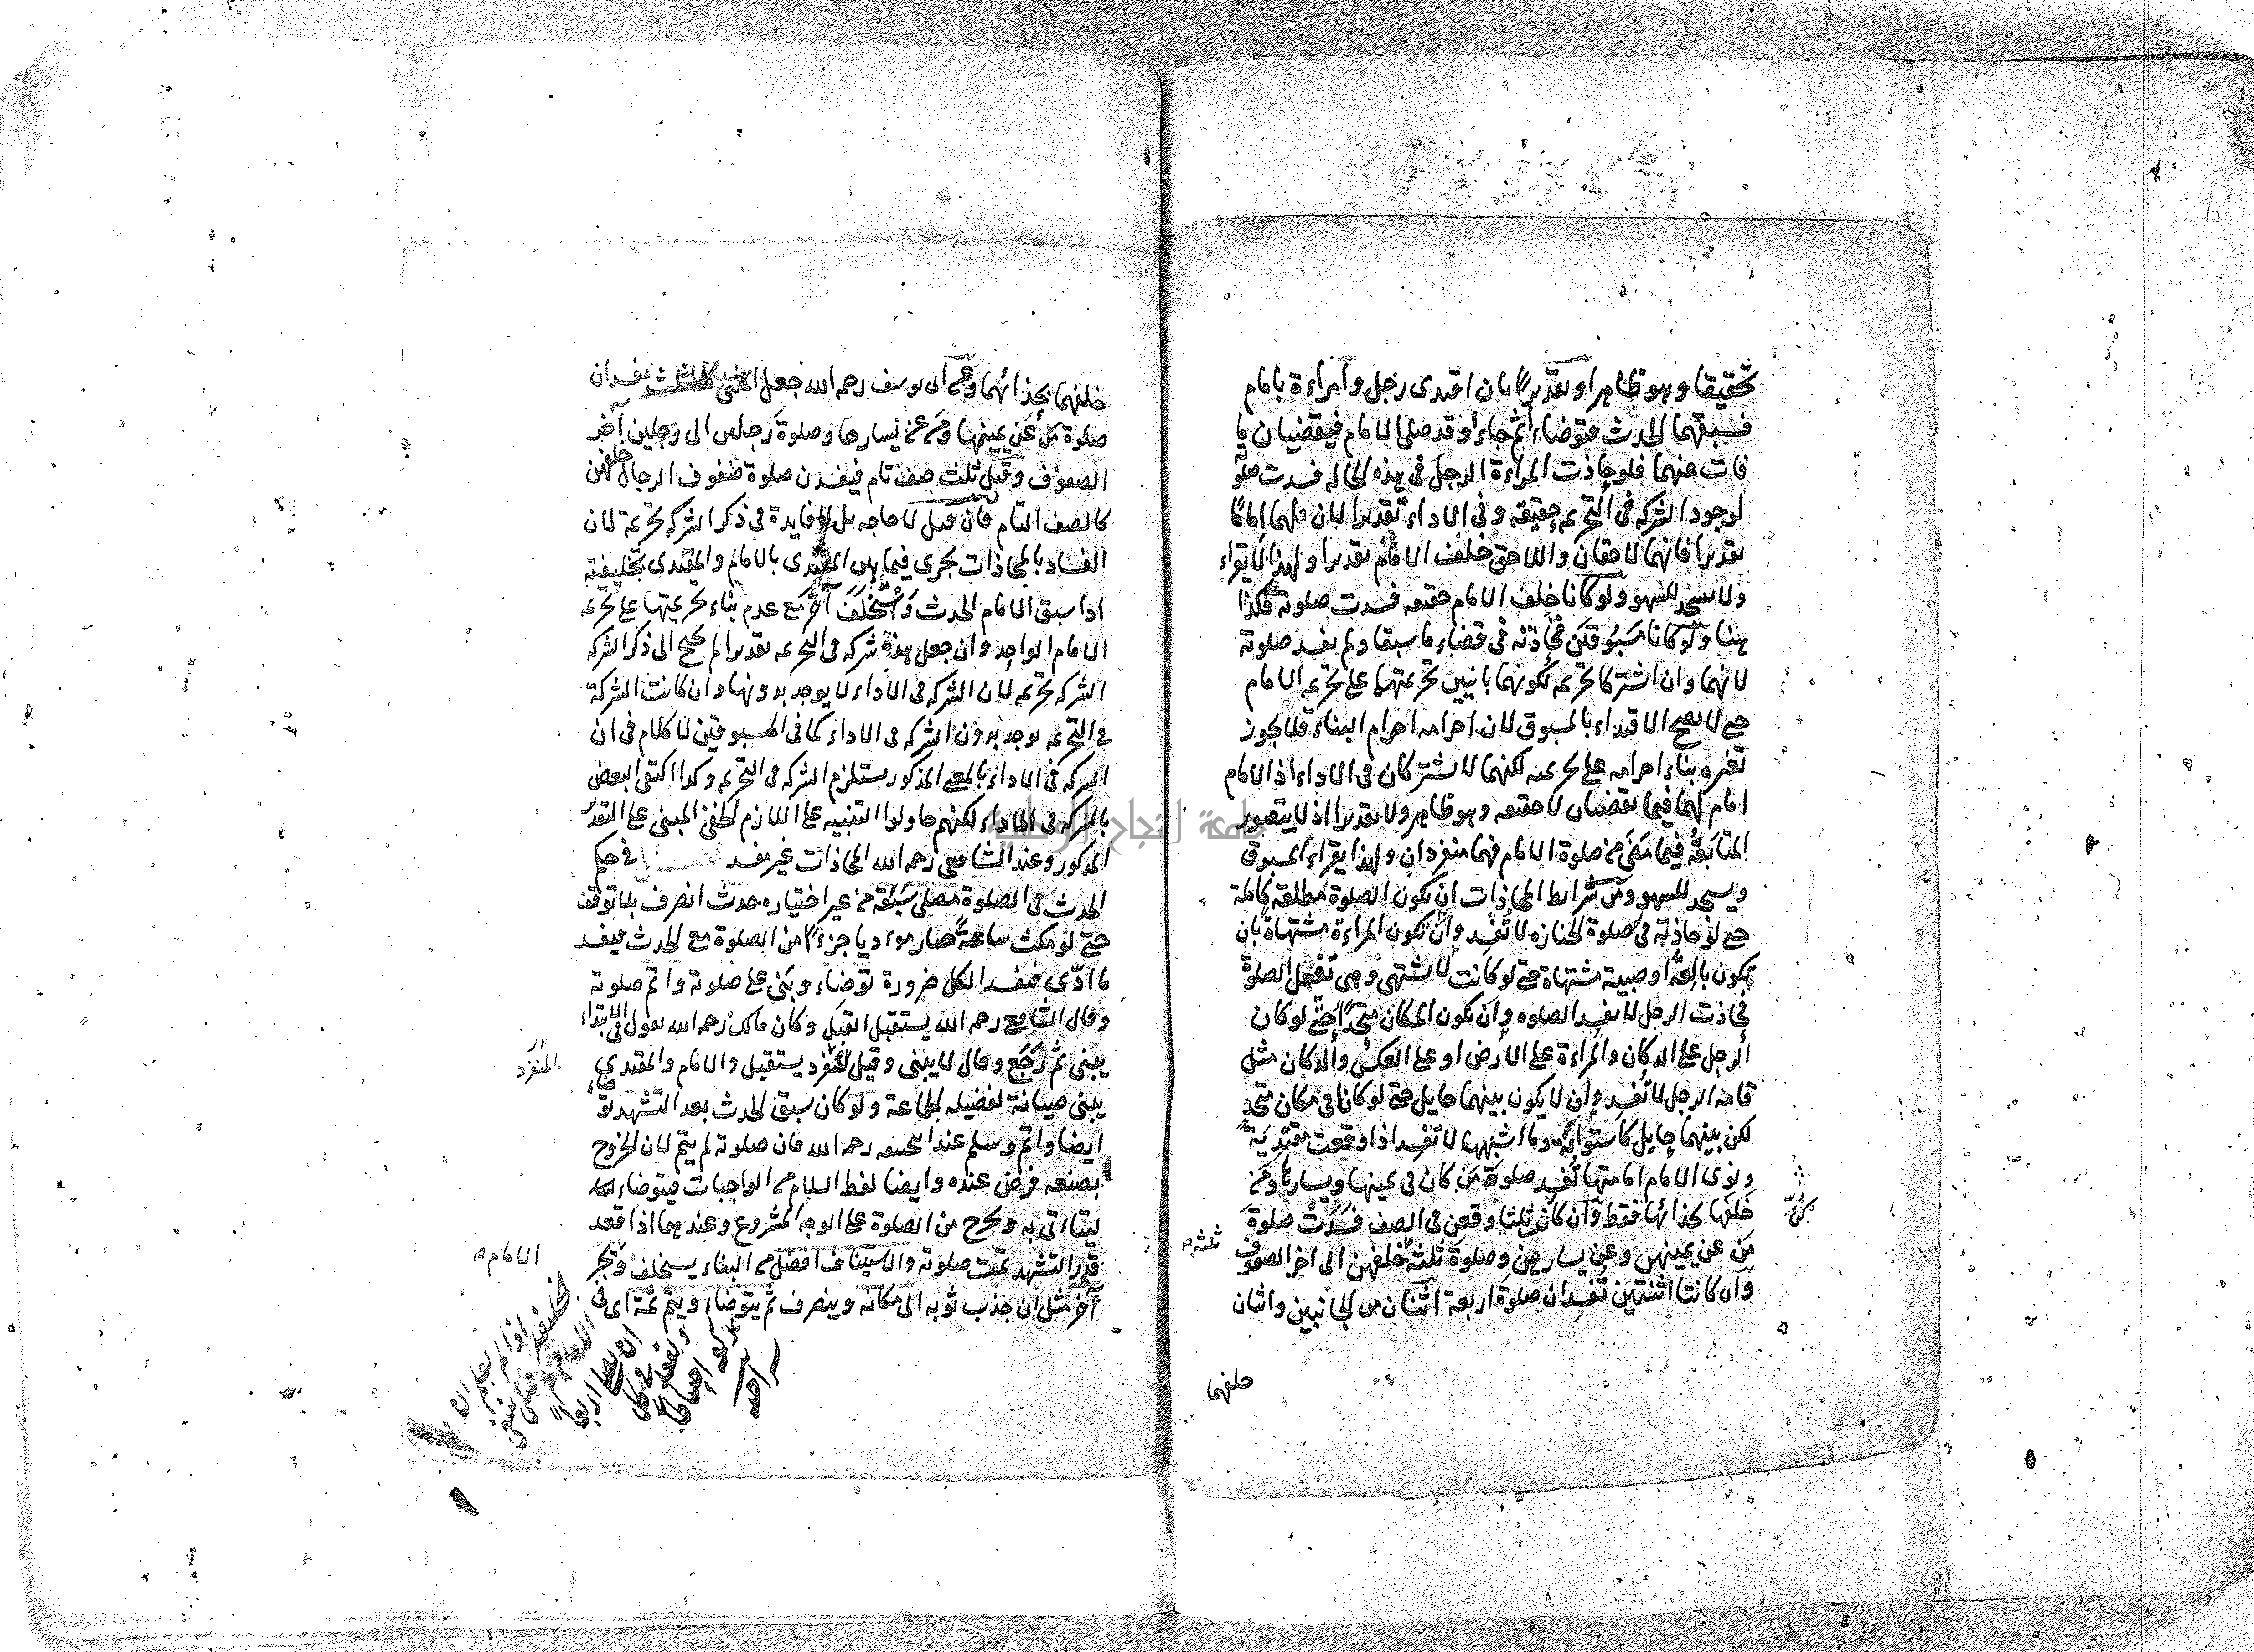 تحقيقا وهو ظاهر او تقديرا بان اقتدى رجل وامراءة بامام
فسبقهما الحدث فتوضاء اثم جاءا وقد صلى الامام فيقضيان ما
فات عنهما فلو حاذت المراءة الرجل فى هذه الحاله فسدت صلوته
لوجود الشركه فى التحريمه حقيقه وفى الاداء تقديرا لان لهما اماما
تقديرا فانهما لاحقان واللاحق خلف الامام تقديرا ولهذا لا يقراء
ولا يسجد للسهو ولو كانا خلف الامام حقيقه فسدت صلوته فكذا
ههنا ولو كانا مسبوقين فحاذته فى قضاء ما سبقا ولم يفسد صلوته
لانهما وان اشتركا تحريمه لكونهما بانيين تحريمتهما على تحريمه الامام
حتى لا يصح الاقتداء بالمسبوق لان احرامه احرام البناء فلا يجوز
لغيره بناء احرامه على تحريمه لكنهما لا يشتركان فى الاداء اذ الامام
امام لهما فيما يقضيان لا حقيقه وهو ظاهر ولا تقديرا اذ لا يتصور
المتابعة فيما مضى من صلوة الامام فهما منفردان ولهذا يقراء المسبوق
ويسجد للسهو ومن شرايط المحاذات ان يكون الصلوة مطلقه كاملة
حتى لو حاذته فى صلوة الجنازه لا تفسد وان تكون المراءة مشتهاة بان
تكون بالغة او صبية مشتهاة حتى لو كانت لا تشتهى وهى تفعل الصلوة
فحاذت الرجل لا تفسد الصلوه وان يكون المكان متحدا حتى لو كان
الرجل على الدكان والمراءة على الارض او على العكس والدكان مثل
قامه الرجل لا تفسد وان لا يكون بينهما حايل حتى لو كانا فى مكان متحد
لكن بينهما حايل كاستوانة وما اشبهها لا تفسد اذا وقعت مقتدية
ونوى الامام امامتها تفسد صلوة من كان فى يمينها ويسارها ومن
خلفها بحذائها فقط وان كان ثلثا وقعن فى الصف فسدت صلوة
من عن يمينهن وعن يسارهن وصلوة ثلثة خلفهن الى اخر الصفوف
ثلثة
وان كانتا اثنتين تفسدان صلوة اربعة اثنان من الجانبين واثنان
خلفهما
خلفهما بحذائهما وعن ابى يوسف رحمه الله جعل المثنى كالثلث يفسدان
صلوة من عن يمينها ومن عن يسارها وصلوة رجلين الى رجلين آخر
الصفوف وقيل ثلث صف تام فيفسدن صلوة صفوف الرجال خلفهن
كالصف التام فان قيل لا حاجه بل لا فايدة فى ذكر الشركه تحريمة لان
الفساد بالمحاذات يجرى فيما بين المقتدى بالامام والمقتدى بخليفته
اذا سبق الامام الحدث واستخلف آخر مع عدم بناء تحريمتها على تحريمه
الامام الواحد وان جعل هذه شركه فى التحريمه تقديرا لم يحتج الى ذكر الشركه
الشركه تحريمه لان الشركه فى الاداء لا يوجد بدونها وان كانت الشركة
فى التحريمه يوجد بدون الشركه فى الاداء كما فى المسبوقين لا كلام فى ان
الشركه فى الاداء بالمعنى المذكور يستلزم الشركه فى التحريمه وكذا اكتفى البعض
بالشركه فى الاداء لكنهم حاولوا التنبيه على اللازم الخفى المبنى على التقدير
المذكور وعند الشافعى رحمه الله المحاذات غير مفسد فصل فى حكم
الحدث فى الصلوة مصلى سبقه من غير اختياره حدث انصرف بلا توقف
حتى لو مكث ساعة صار موءديا جزءا من الصلوة مع الحدث فيفسد
ما ادى فيفسد الكل ضرورة توضاء وبنى على صلوته واتم صلوته
وقال الشافعى رحمه الله يستقبل القبل وكان مالك رحمه الله يقول فى الابتداء
يبنى ثم رجع وقال لا يبنى وقيل المنفرد يستقبل والامام والمقتدى
المنفرد
يبنى صيانة لفضيله الجماعة ولو كان سبق الحدث بعد التشهد توضاء
ايضا واتم وسلم عند ابى حنيفه رحمه الله فان صلوته لم يتم لان الخروج
بصنعه فرض عنده وايضا لفظ السلام من الواجبات فيتوضاء
ليتاءتى به ويخرج من الصلوة على الوجه المشروع وعندهما اذا قعد
قدر التشهد تمت صلوته والاستيناف افضل من البناء يستخلف ويجر
الامام
آخر مثل ان جذب ثوبه الى مكانه وينصرف ثم يتوضاء ويتم ثمة اى فى